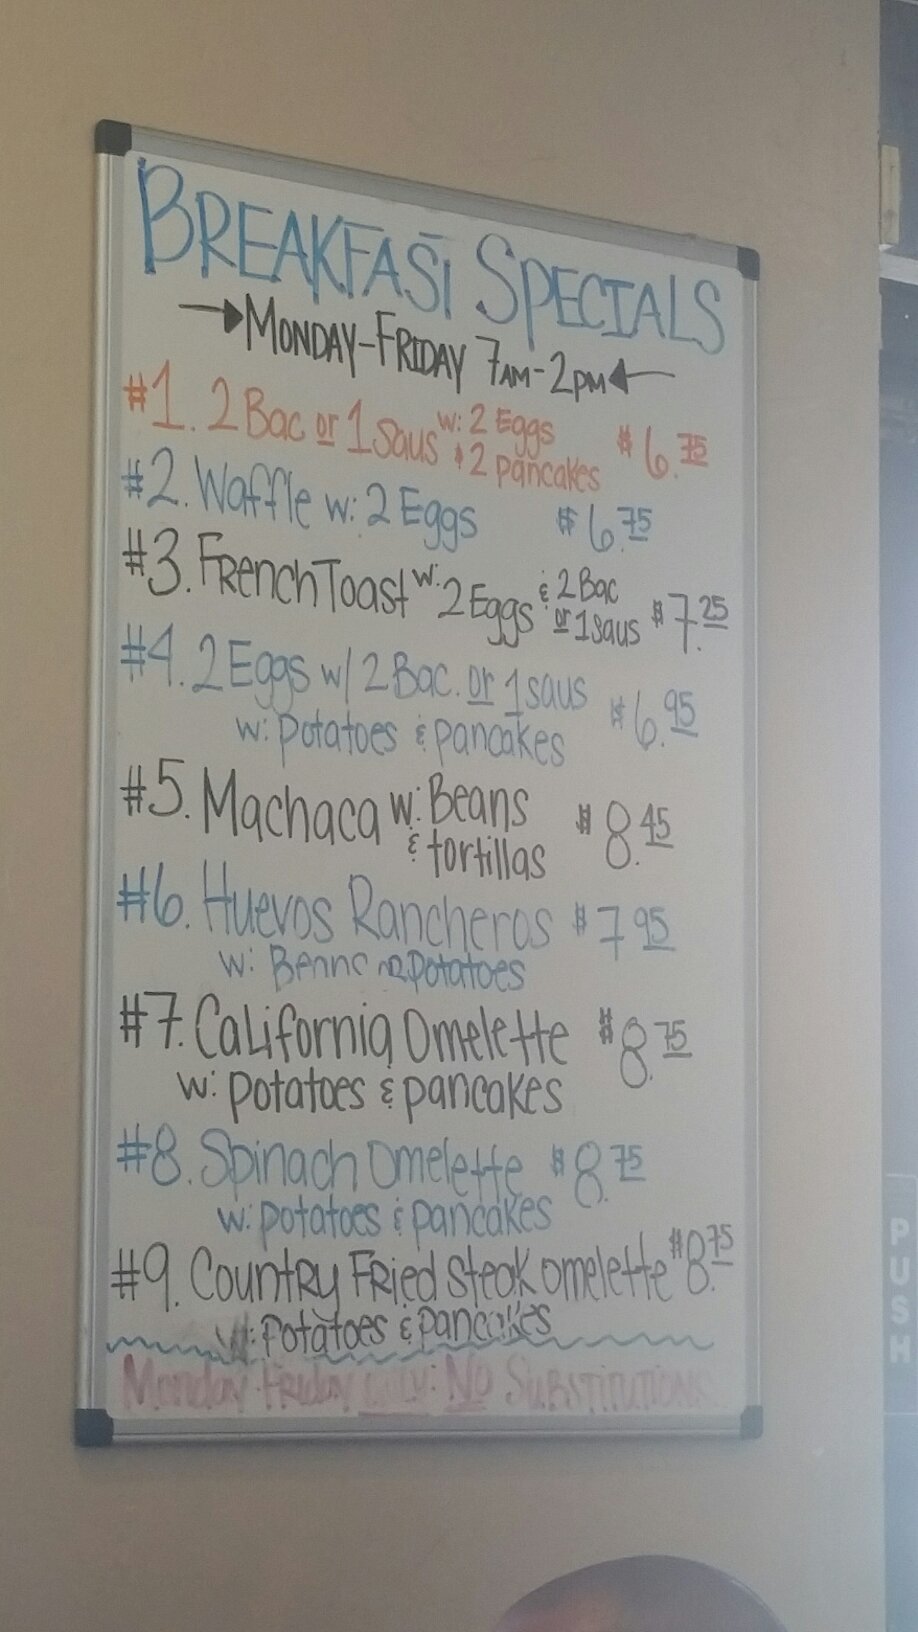 BREAKFAST SPECIALS
MONDAY-FRIDAY 7AM-2PM
#1. 2 Bac or 1 Saus w: 2 Eggs & 2 pancakes $6.75
#2. Waffle w: 2 Eggs $6.75
#3. French Toast w: 2 Eggs & 2 Bac or 1 saus $7.25
#4. 2 Eggs w/ 2 Bac. or 1 saus
w: potatoes & pancakes $6.95
#5. Machaca w: Beans
& tortillas $8.45
#6. Huevos Rancheros $7.95
w: Beans or Potatoes
#7. California Omelette $8.75
w: potatoes & pancakes
#8. Spinach Omelette $8.75
w: potatoes & pancakes
#9. Country Fried Steak omelette $8.75
w: Potatoes & pancakes
Monday-Friday ONLY: No SUBSTITUTIONS
PUSH